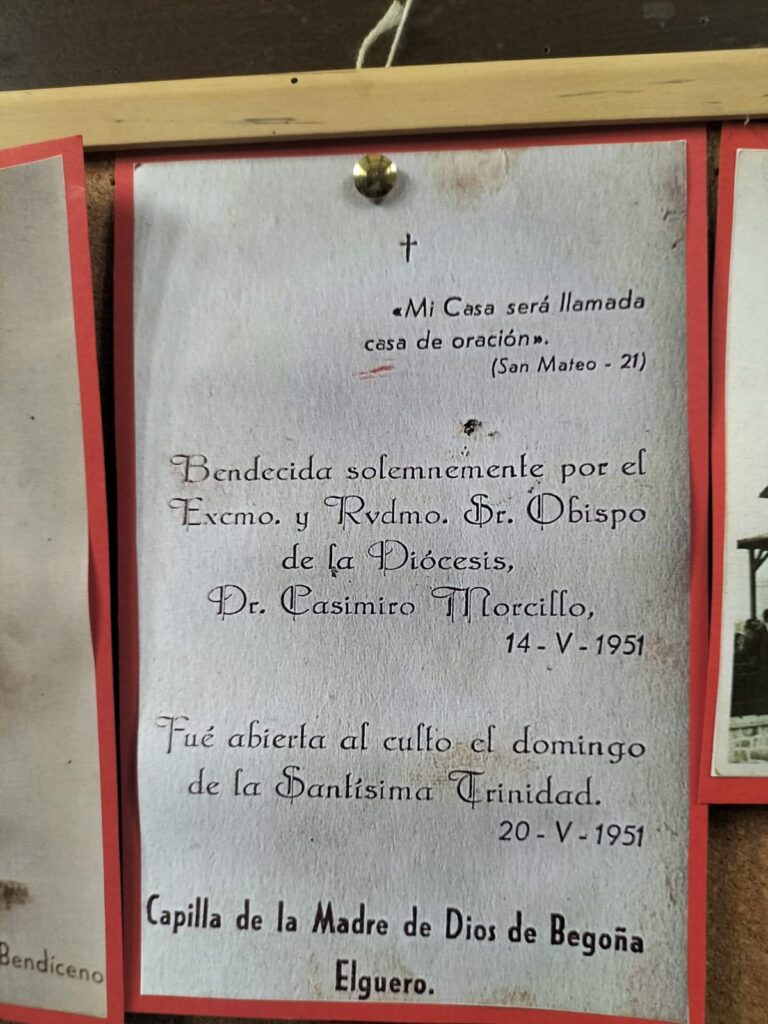 «Mi Casa será llamada
casa de oración».
(San Mateo - 21)
Bendecida solemnemente por el
Excmo. y Rvdmo. Sr. Obispo
de la Diócesis,
Dr. Casimiro Morcillo,
14 - V - 1951
Fué abierta al culto el domingo
de la Santísima Trinidad.
20 - V - 1951
Capilla de la Madre de Dios de Begoña
Elguero.
Bendíceno